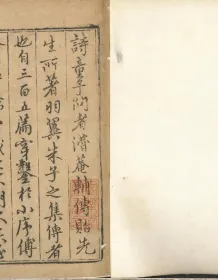 詩童子問者潛菴輔傳貽先
生所著羽翼朱子之集傳者
也自三百五篇穿鑿於小序傅